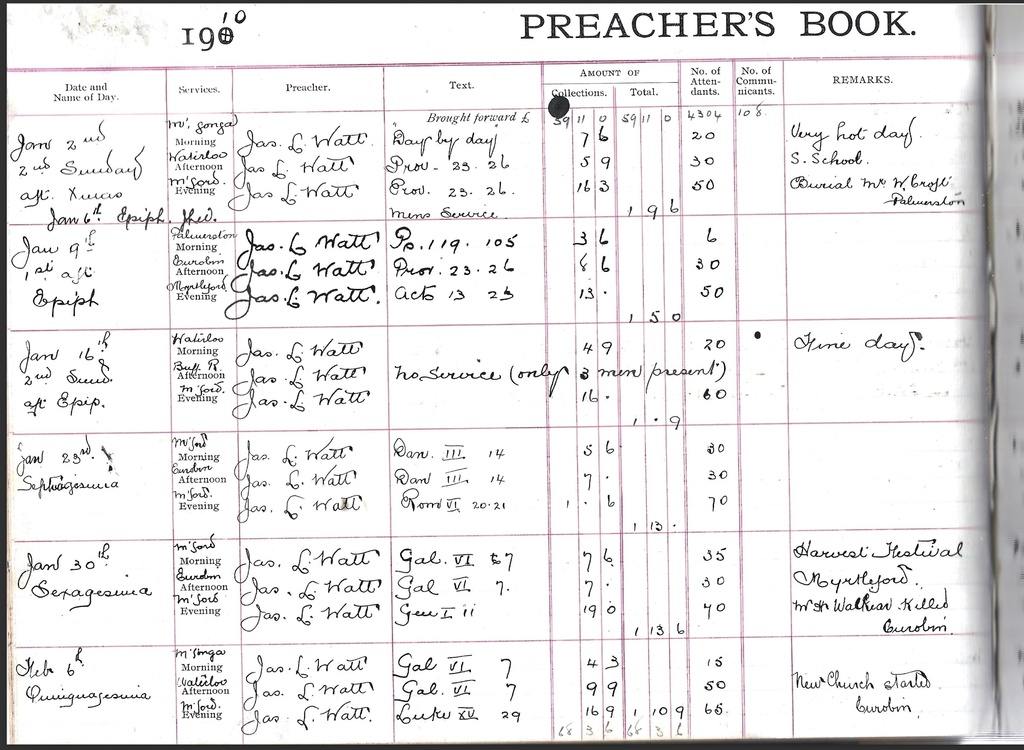 1910 PREACHER'S BOOK.
Date and Name of Day. Services. Preacher. Text. AMOUNT OF Collections. Total. No. of Attendants. No. of Communicants. REMARKS.
Brought forward £ 59 11 0 59 11 0 4304 108
Jan 2nd Mt Gonga Morning Jas. L. Watt "Day by day" 7 6 20 Very hot day.
2nd Sunday Waterloo Afternoon Jas L. Watt Prov. 23. 26 5 9 30 S. School.
aft. Xmas M'ford. Evening Jas L. Watt Prov. 23. 26. 16 3 50 Burial Mr W. Croft
Jan 6th Epiph. Mens Service 1 9 6 Palmerston
Jan 9th Palmerston Morning Jas. L. Watt Ps. 119. 105 3 6 6
1st aft Eurobin Afternoon Jas. L. Watt Prov. 23. 26 8 6 30
Epiph Myrtleford Evening Jas. L. Watt. Acts 13 23 13 . 50
1 5 0
Jan 16th Waterloo Morning Jas. L. Watt 4 9 20 Fine day.
2nd Sund. Buff. R. Afternoon Jas. L. Watt No Service (only 3 men present)
aft Epip. M'ford. Evening Jas. L. Watt 16 . 60
1 . 9
Jan 23rd. M'ford Morning Jas. L. Watt Dan. III 14 5 6 30
Septuagesima Eurobin Afternoon Jas. L. Watt Dan III 14 7 . 30
M'ford. Evening Jas. L. Watt Rom VI 20-21 1 . 6 70
1 13 .
Jan 30th M'ford Morning Jas. L. Watt Gal. VI 7 7 6 35 Harvest Festival
Sexagesima Eurobin Afternoon Jas. L. Watt Gal VI 7. 7 . 30 Myrtleford.
M'ford Evening Jas. L. Watt Gen I ii 19 0 40 Walker Killed
1 13 6 Eurobin.
Feb 6th. M'Gonga Morning Jas. L. Watt Gal VI 7 4 3 15
Quinquagesima Waterloo Afternoon Jas. L. Watt Gal. VI 7 9 9 50 New Church started
M'ford. Evening Jas. L. Watt. Luke XV 29 16 9 1 10 9 65 Eurobin.
68 3 6 68 3 6